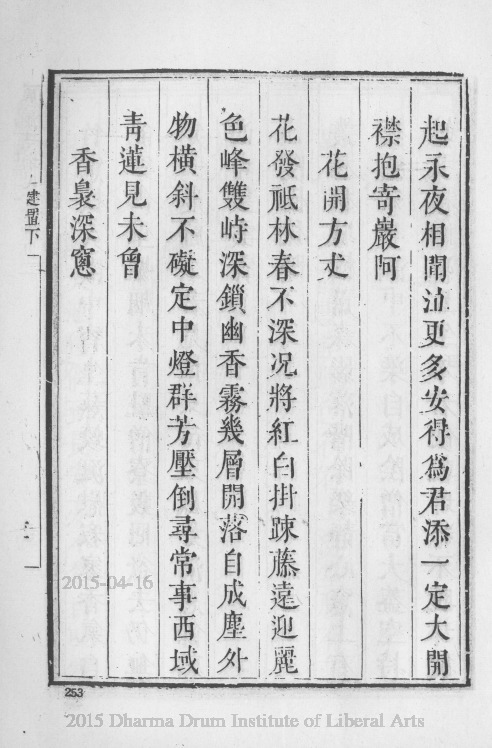 起永夜相聞泣更多安得為君添一定大開
襟抱寄巖阿
花開方丈
花發祗林春不深况將紅白掛踈藤遠迎麗
色峰雙峙深鎖幽香霧幾層開落自成塵外
物橫斜不礙定中燈群芳壓倒尋常事西域
青蓮見未曾
香裊深窻
建置下
253
2015-04-16
2015 Dharma Drum Institute of Liberal Arts